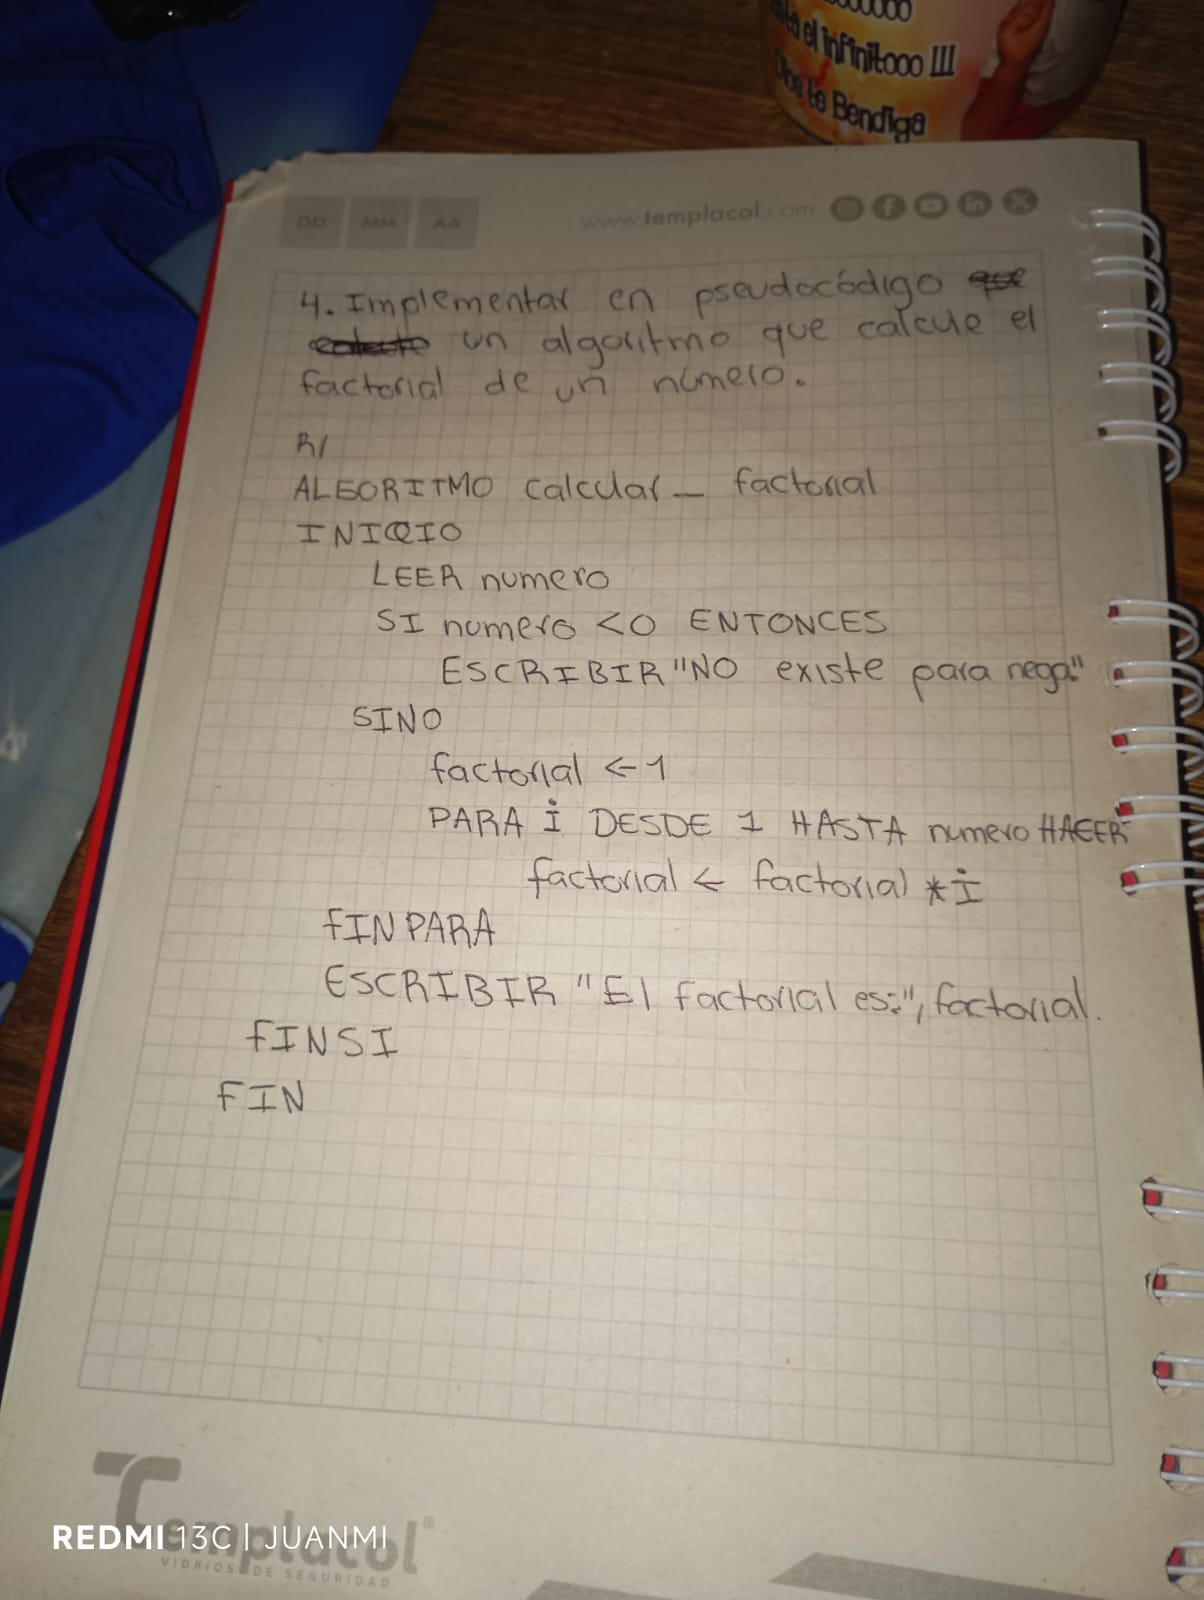 el infinitooo !!!
Dios te Bendiga
DD MM AA
www.templacol.com
4. Implementar en pseudocódigo
un algoritmo que calcule el
factorial de un número.
R/
ALGORITMO calcular_ factorial
INICIO
LEER numero
SI numero <0 ENTONCES
ESCRIBIR "NO existe para nega."
SINO
factorial ← 1
PARA i DESDE 1 HASTA numero HACER
factorial ← factorial * i
FINPARA
ESCRIBIR "El factorial es:", factorial.
FINSI
FIN
Templacol®
VIDRIOS DE SEGURIDAD
REDMI 13C | JUANMI